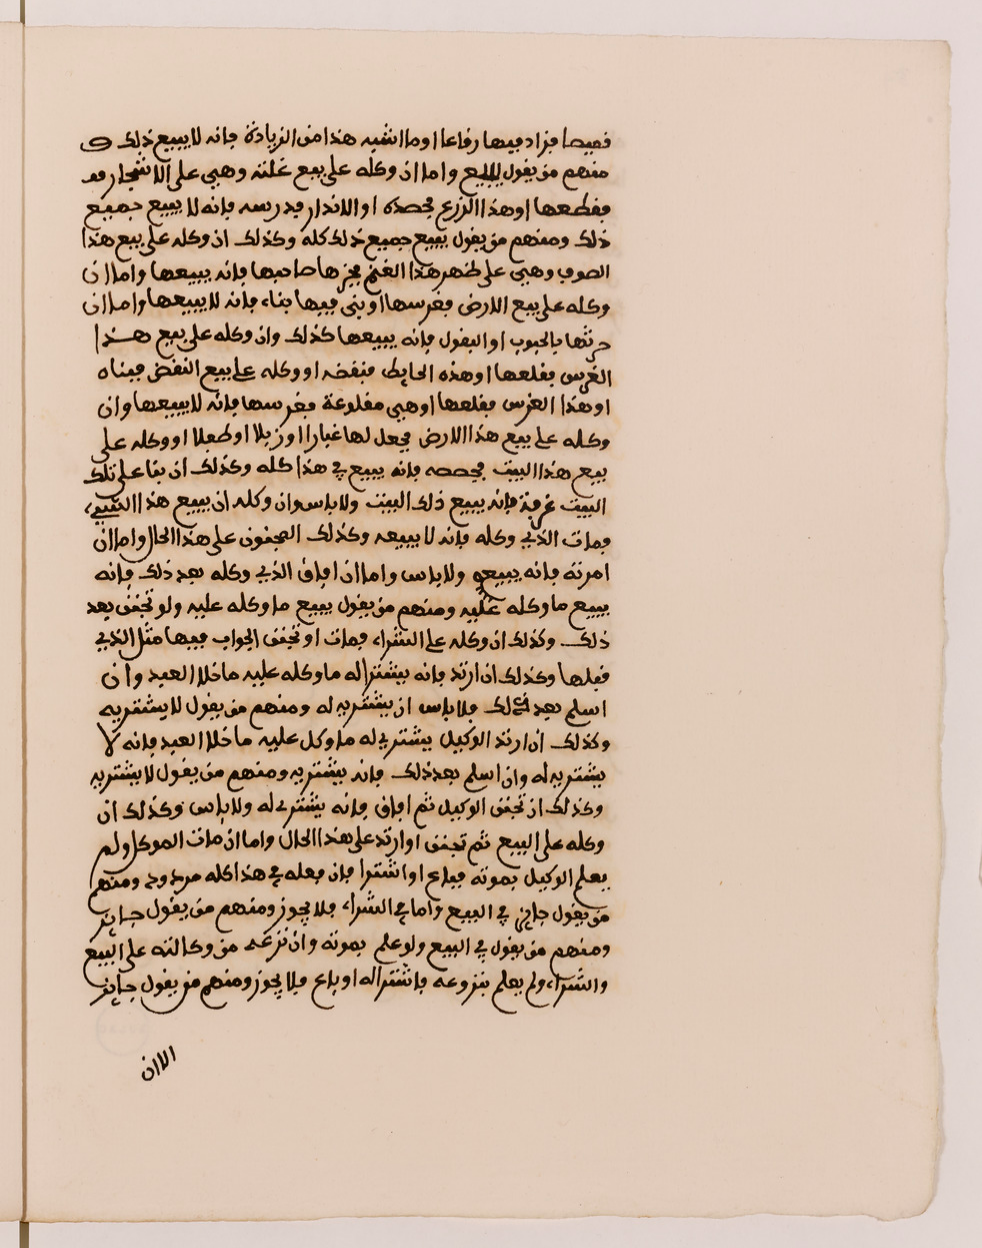 قميصا فزاد فيها رقاعا او ما اشبه هذا من الزيادة فانه لا يبيع ذلك و
منهم من يقول يبيع واما ان وكله على بيع غلته وهي على الاشجار
فقطعها او هذا الزرع فحصده او الاندار فدرسه فانه لا يبيع جميع
ذلك ومنهم من يقول يبيع جميع ذلك كله وكذلك ان وكله على بيع هذا
الصوف وهي على ظهر هذا الغنم فجزها صاحبها فانه يبيعها واما ان
وكله على بيع الارض فغرسها او بنى فيها بناء فانه لا يبيعها واما ان
حرثها بالحبوب او البقول فانه يبيعها كذلك وان وكله على بيع هذا
الغرس فقلعها او هذه الحايط فنقضه او وكله على بيع النقض فبناه
او هذا الغرس فقلعها او هي مقلوعة فغرسها فانه لا يبيعها وان
وكله على بيع هذا الارض فجعل لها غبارا او زبلا او طفلا او وكله على
بيع هذا البيت فجصصه فانه يبيع في هذا كله وكذلك ان بنا على تلك
البيت غرفة فانه يبيع ذلك البيت ولا باس وان وكله ان يبيع هذا الشيء
فمات الذي وكله فانه لا يبيعه وكذلك المجنون على هذا الحال واما ان
امرته فانه يبيعه ولا باس واما ان افاق الذي وكله بعد ذلك فانه
يبيع ما وكله عليه ومنهم من يقول يبيع ما وكله عليه ولو تجنن بعد
ذلك وكذلك ان وكله على الشراء فمات او تجنن الجواب فيها مثل الذي
قبلها وكذلك ان ارتد فانه يشترا له ما وكله عليه ما خلا العبد وان
اسلم بعد ذلك فلا باس ان يشتريه له ومنهم من يقول لا يشتريه
وكذلك ان ارتد الوكيل يشتري له ما وكل عليه ما خلا العبد فانه لا
يشتريه له وان اسلم بعد ذلك فانه يشتريه ومنهم من يقول لا يشتريه
وكذلك ان تجنن الوكيل ثم افاق فانه يشتري له ولا باس وكذلك ان
وكله على البيع ثم تجنن او ارتد على هذا الحال واما ان مات الموكل ولم
يعلم الوكيل بموته فباع او اشترا فان فعله في هذا كله مردود ومنهم
من يقول جايز في البيع واما في الشراء فلا يجوز ومنهم من يقول جايز
ومنهم من يقول في البيع ولو علم بموته وان نزعه من وكالته على البيع
والشراء ولم يعلم بنزوعه فاشترا له او باع فلا يجوز ومنهم من يقول جايز
الا ان